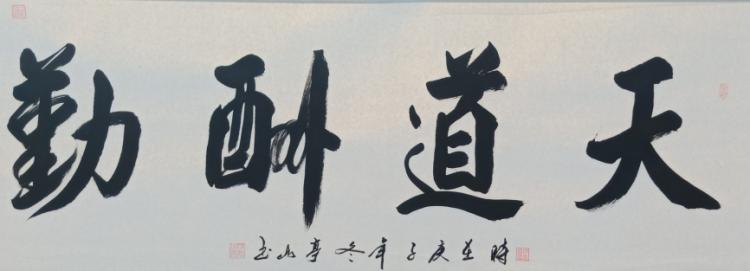 天道酬勤
時在庚子年冬亭山